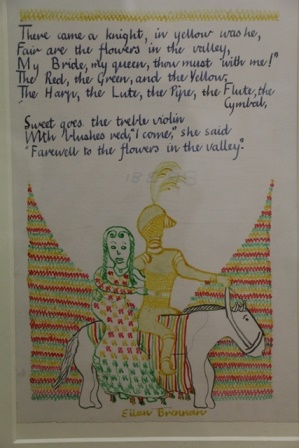 There came a knight, in yellow was he,
Fair are the flowers in the valley,
My Bride, my queen, thou must with me!"
The Red, the Green, and the Yellow.
The Harp, the Lute, the Pipe, the Flute, the
Cymbal,
Sweet goes the treble violin
With blushes red, "I come," she said
"Farewell to the flowers in the valley."
Ellen Brennan